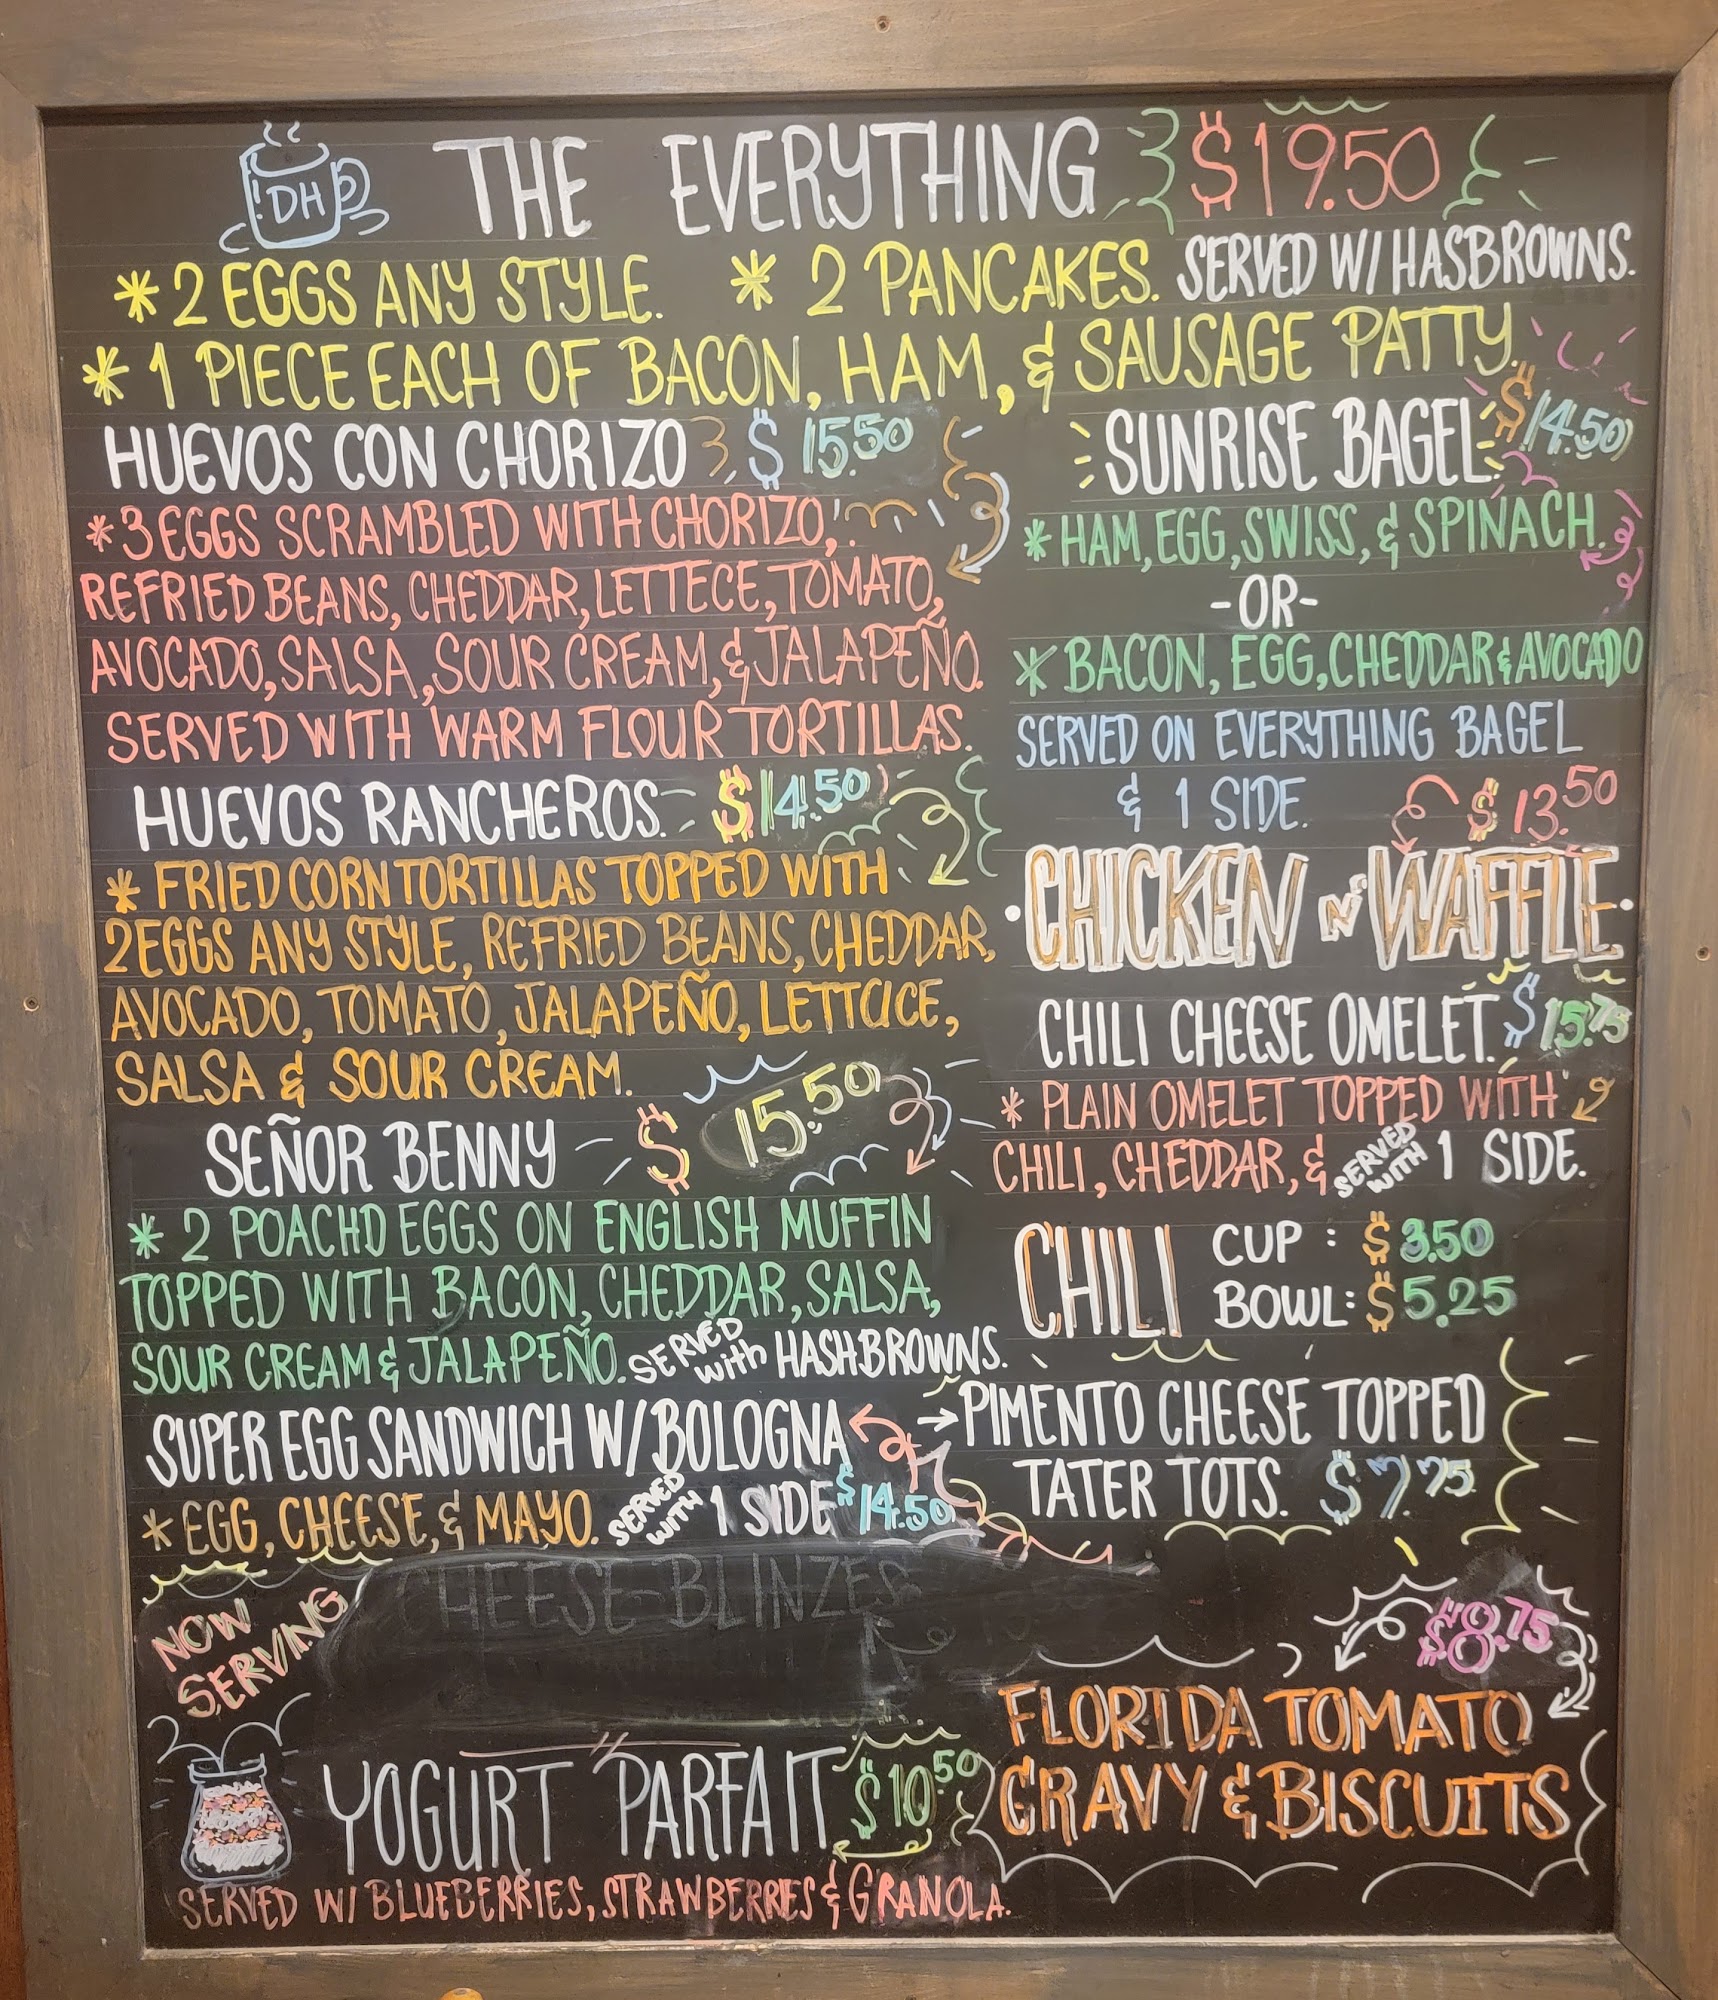 DH
THE EVERYTHING $19.50
* 2 EGGS ANY STYLE. * 2 PANCAKES. SERVED W/ HASBROWNS.
* 1 PIECE EACH OF BACON, HAM, & SAUSAGE PATTY.
HUEVOS CON CHORIZO $15.50
*3 EGGS SCRAMBLED WITH CHORIZO,
REFRIED BEANS, CHEDDAR, LETTECE, TOMATO,
AVOCADO, SALSA, SOUR CREAM, & JALAPEÑO.
SERVED WITH WARM FLOUR TORTILLAS.
HUEVOS RANCHEROS. $14.50
* FRIED CORN TORTILLAS TOPPED WITH
2 EGGS ANY STYLE, REFRIED BEANS, CHEDDAR,
AVOCADO, TOMATO, JALAPEÑO, LETTUCE,
SALSA & SOUR CREAM.
SEÑOR BENNY $15.50
* 2 POACHD EGGS ON ENGLISH MUFFIN
TOPPED WITH BACON, CHEDDAR, SALSA,
SOUR CREAM & JALAPEÑO. SERVED with HASHBROWNS.
SUPER EGG SANDWICH W/ BOLOGNA
* EGG, CHEESE, & MAYO. SERVED WITH 1 SIDE $14.50
CHEESE BLINZES
NOW
SERVING
YOGURT PARFAIT $10.50
SERVED W/ BLUEBERRIES, STRAWBERRIES & GRANOLA.
SUNRISE BAGEL $14.50
* HAM, EGG, SWISS, & SPINACH.
-OR-
* BACON, EGG, CHEDDAR & AVOCADO
SERVED ON EVERYTHING BAGEL
& 1 SIDE.
$13.50
CHICKEN N' WAFFLE
CHILI CHEESE OMELET. $15.75
* PLAIN OMELET TOPPED WITH
CHILI, CHEDDAR, & SERVED WITH 1 SIDE.
CHILI CUP: $3.50
BOWL: $5.25
PIMENTO CHEESE TOPPED
TATER TOTS. $7.75
$8.75
FLORIDA TOMATO
GRAVY & BISCUITS